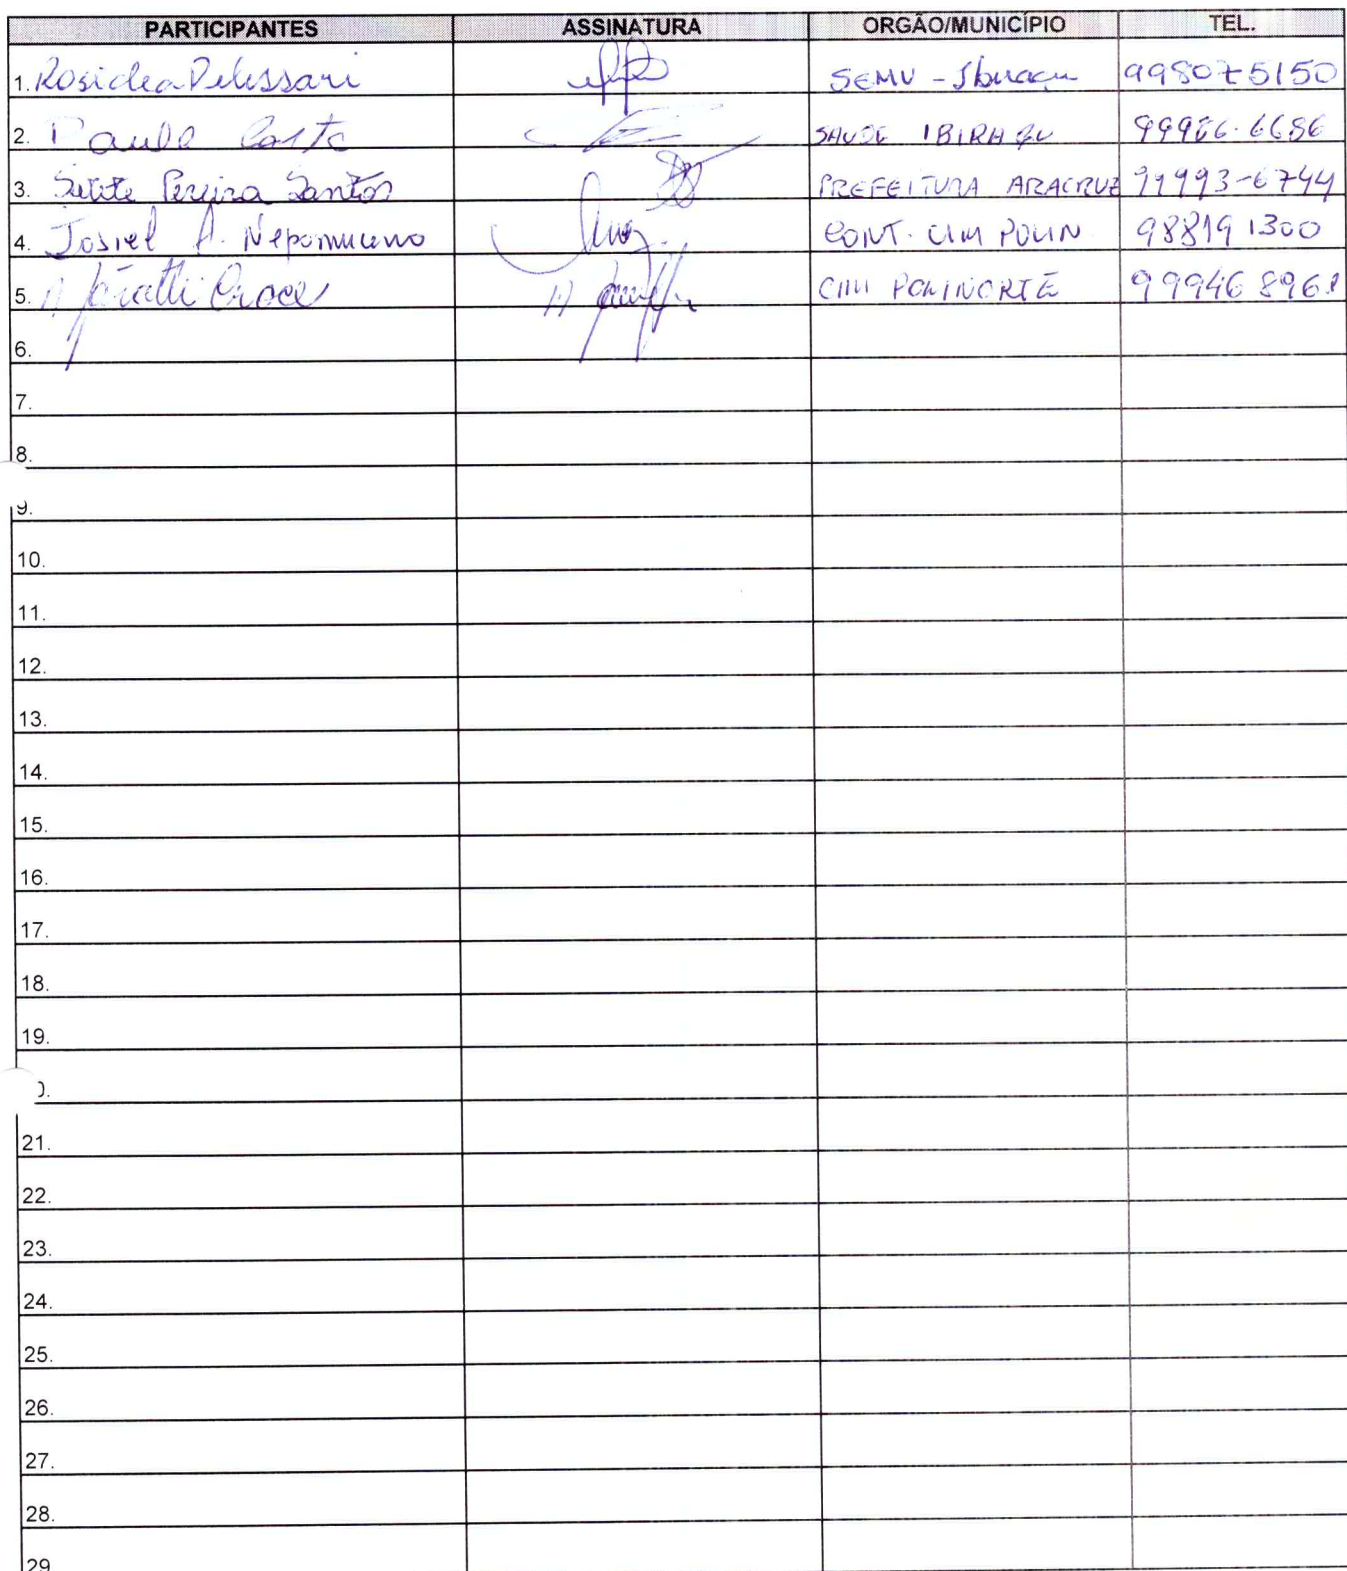 PARTICIPANTES ASSINATURA ORGÃO/MUNICÍPIO TEL.
1. Rosiclea Pelissari SEMU - Ibiraçu 998075150
2. Paulo Costa SAUDE IBIRAÇU
3. Pereira Santos PREFEITURA ARACRUZ 99993-6744
4. Josiel A. Nepomuceno CONT. CIM POLIN 98819 1300
5. CIM POLINORTE 99946 896
6.
7.
8.
9.
10.
11.
12.
13.
14.
15.
16.
17.
18.
19.
21.
22.
23.
24.
25.
26.
27.
28.
29